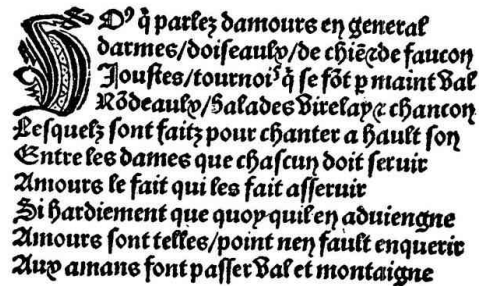 VO⁹ q̃ parlez damours en general
darmes/doiſeaulx/de chiẽ⁊de faucon
Jouſtes/tournoiˢ q̃ ſe fõt p maint val
Rõdeaulx/balades virelay⁊ chancon
Leſquelz ſont faitz pour chanter a hault ſon
Entre les dames que chaſcun doit ſeruir
Amours le fait qui les fait aſſeruir
Si hardiement que quoy quil en aduiengne
Amours ſont telles/point nen fault enquerir
Aux amans font paſſer val et montaigne